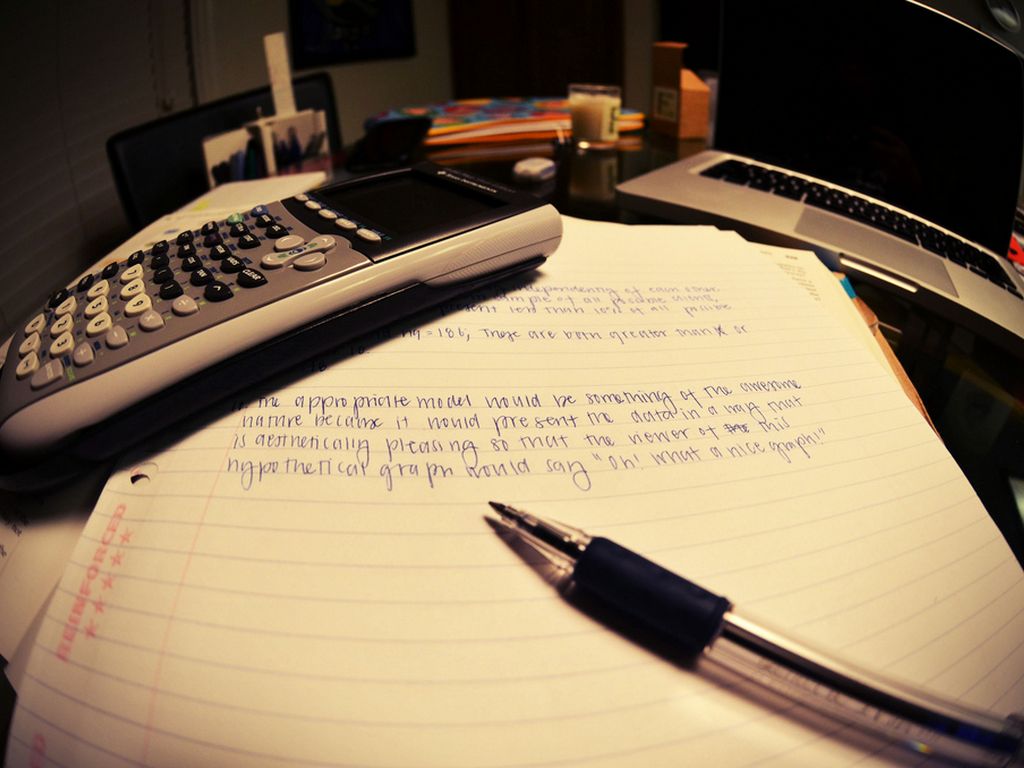 independency of each other.
sample of all possible clients,
present less than 10% of all possible
= 186, These are both greater than or
the appropriate model would be something of the awesome
nature because it would present the data in a way that
is aesthetically pleasing so that the viewer of this
hypothetical graph would say "Oh! What a nice graph!"
REINFORCED
CLEAR